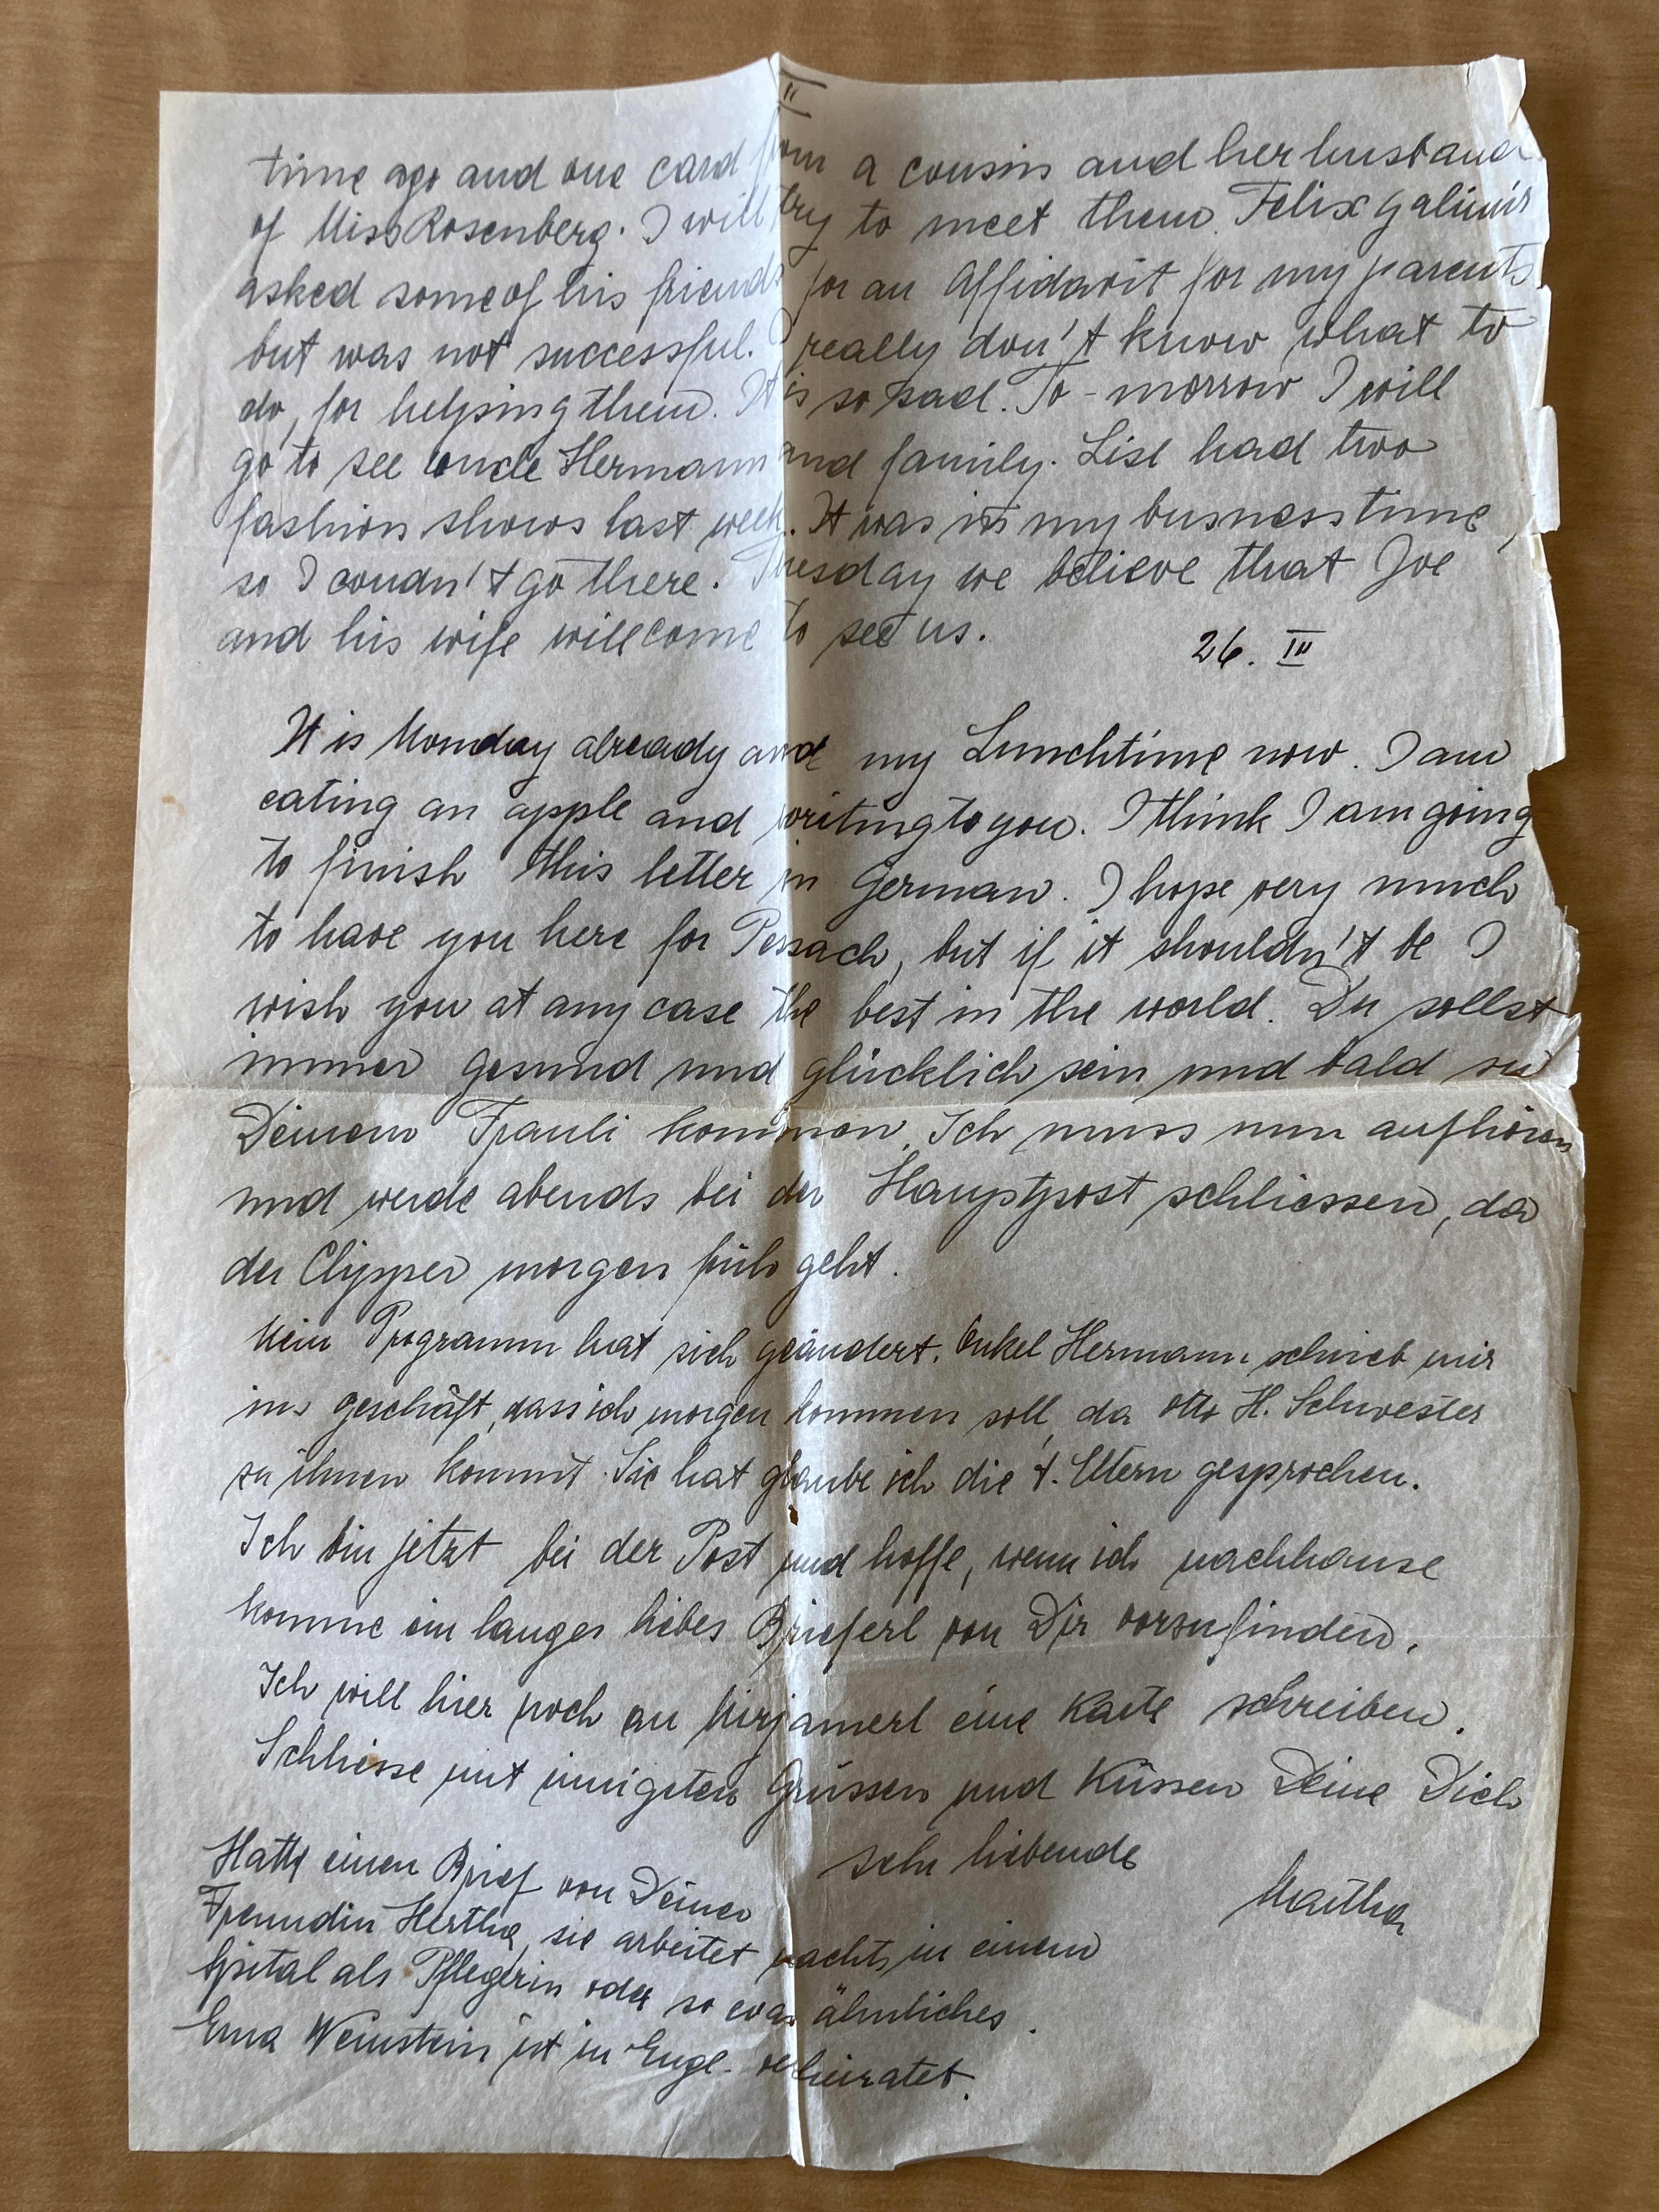 II
time ago and one card from a cousin and her husband
of Miss Rosenberg. I will try to meet them. Felix Galimir
asked some of his friends for an Affidavit for my parents
but was not successful. I really don't know what to
do, for helping them. It is so sad. To-morrow I will
go to see uncle Hermann and family. Lisl had two
fashion shows last week. It was in my busness time,
so I coudn't go there. Tuesday we believe that Joe
and his wife will come to see us.
26. III
It is Monday already and my Lunchtime now. I am
eating an apple and writing to you. I think I am going
to finish this letter in German. I hope very much
to have you here for Pessach, but if it shouldn't be I
wish you at any case the best in the world. Du sollst
immer gesund und glücklich sein und bald zu
Deinem Frauli kommen. Ich muss nun aufhören
und werde abends bei der Hauptpost schliessen, da
der Clipper morgen früh geht.
Mein Programm hat sich geändert. Onkel Hermann schrieb mir
ins Geschäft, dass ich morgen kommen soll, da Otto H. Schwester
zu ihnen kommt. Sie hat glaube ich die l. Eltern gesprochen.
Ich bin jetzt bei der Post und hoffe, wenn ich nachhause
komme ein langes liebes Brieferl von Dir vorzufinden.
Ich will hier noch an Mirjamerl eine Karte schreiben.
Schliesse mit innigsten Grüssen und Küssen Deine Dich
sehr liebende
Martha
Hatte einen Brief von Deiner
Freundin Hertha, sie arbeitet nachts in einem
Spital als Pflegerin oder so was ähnliches.
Erna Weinstein ist in Engl. verheiratet.